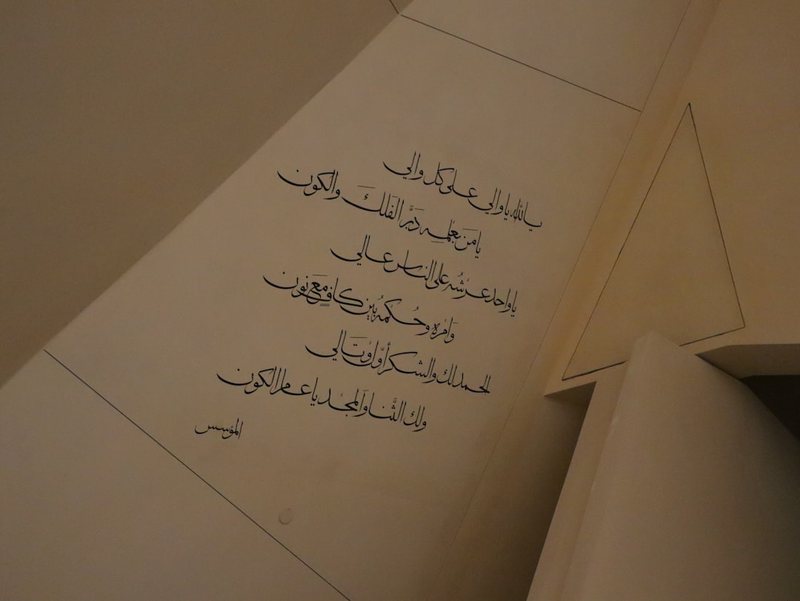 يالله يا والي على كل والي
يا من بعلمه دبّر الفلك والكون
يا واحد عرشه على الناس عالي
وأمره وحكمه بين كافٍ مع نون
الحمد لك والشكر أول وتالي
ولك الثنا والمجد يا عالم الكون
المؤسس